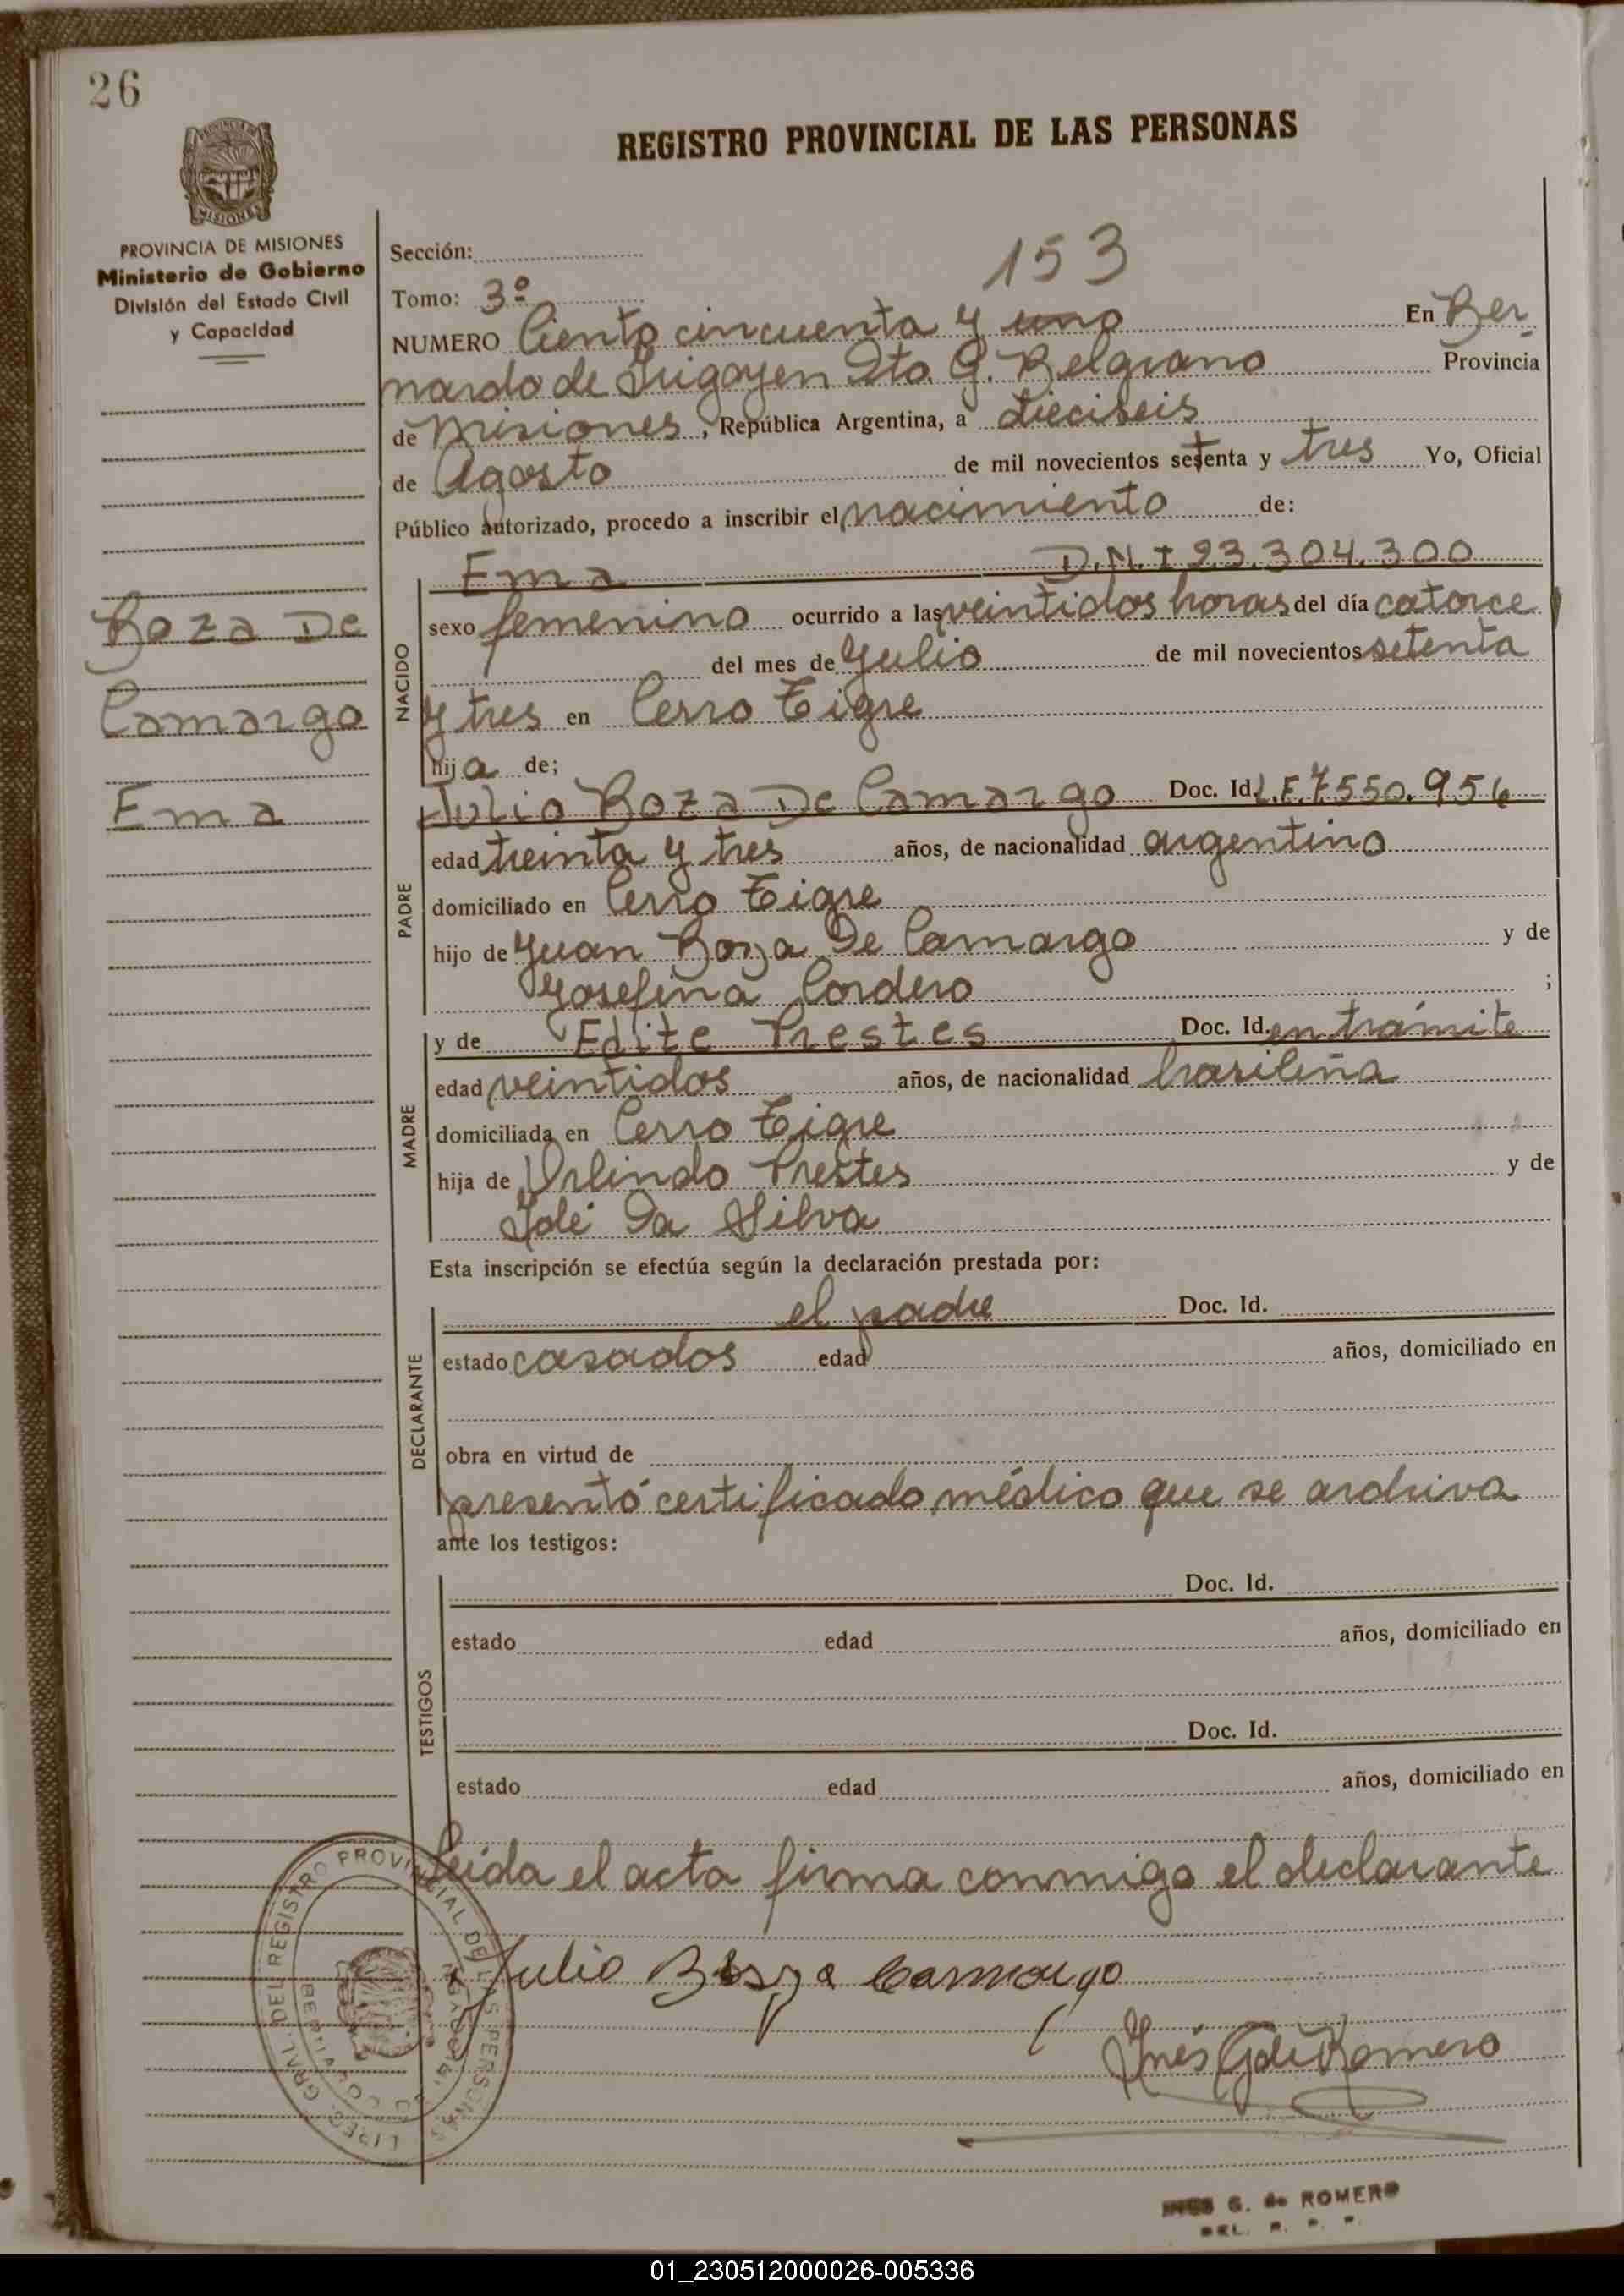 26
REGISTRO PROVINCIAL DE LAS PERSONAS
PROVINCIA DE
MISIONES
PROVINCIA DE MISIONES
Ministerio de Gobierno
División del Estado Civil
y Capacidad
Sección:
153
Tomo: 3º
NUMERO Ciento cincuenta y uno En Ber
nardo de Irigoyen Dto. G. Belgrano Provincia
de Misiones, República Argentina, a dieciseis
de Agosto de mil novecientos setenta y tres Yo, Oficial
Público autorizado, procedo a inscribir el nacimiento de:
Ema D.N.I 23.304.300
Boza De
Camargo
Ema
NACIDO
sexo femenino ocurrido a las veintidos horas del día catorce
del mes de Julio de mil novecientos setenta
y tres en Cerro Tigre
hija de;
PADRE
Julio Boza De Camargo Doc. Id. L.E.7.550.956
edad treinta y tres años, de nacionalidad argentino
domiciliado en Cerro Tigre
hijo de Juan Boza De Camargo y de
Josefina Cordero ;
MADRE
y de Edite Prestes Doc. Id. en trámite
edad veintidos años, de nacionalidad brasileña
domiciliada en Cerro Tigre
hija de Orlindo Prestes y de
Iolé Da Silva
Esta inscripción se efectúa según la declaración prestada por:
DECLARANTE
el padre Doc. Id.
estado casados edad años, domiciliado en
obra en virtud de
presentó certificado médico que se archiva
ante los testigos:
TESTIGOS
Doc. Id.
estado edad años, domiciliado en
Doc. Id.
estado edad años, domiciliado en
Leída el acta firma conmigo el declarante
Julio Boza Camargo
Inés G de Romero
DIREC. GRAL. DEL REGISTRO PROVINCIAL DE LAS PERSONAS
INES G. de ROMERO
DEL. R. P. P.
01_230512000026-005336